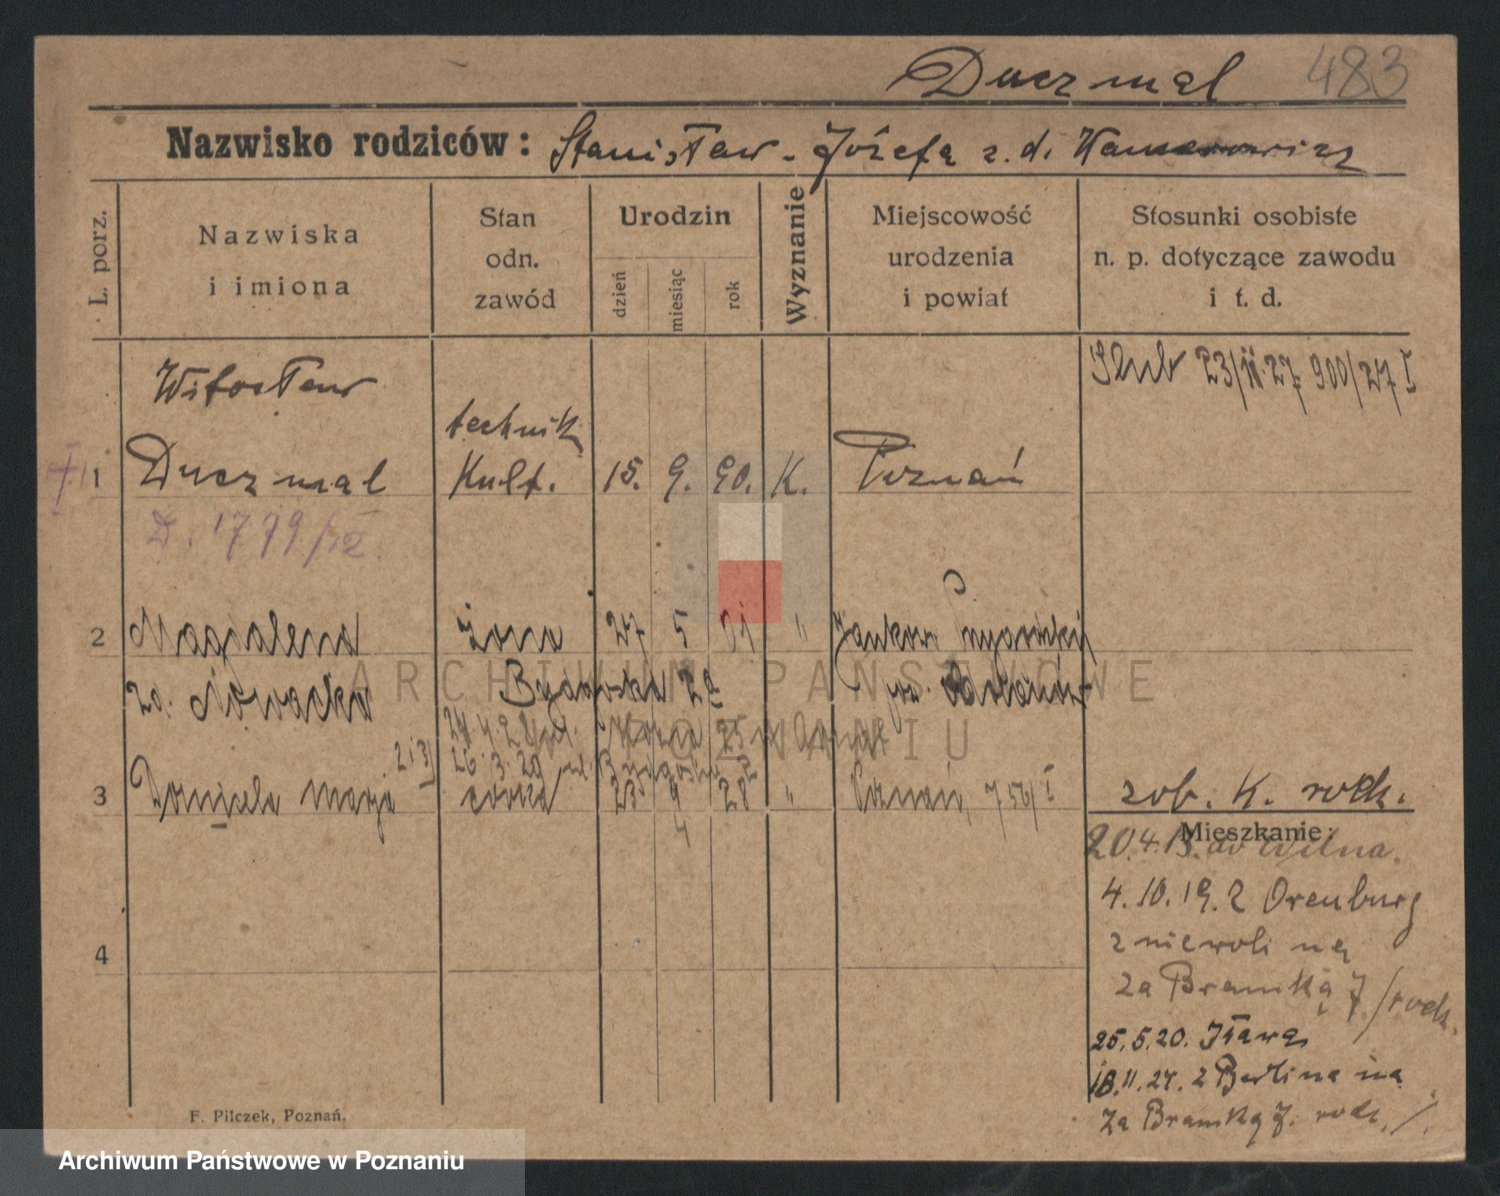 Duczmal 483
Nazwisko rodziców: Stanisław - Józefa z. d.
L. porz.
Nazwiska
i imiona
Stan
odn.
zawód
Urodzin
dzień
miesiąc
rok
Wyznanie
Miejscowość
urodzenia
i powiat
Stosunki osobiste
n. p. dotyczące zawodu
i t. d.
Witosław
Ślub 23/II.27. 900/27 I
technik
1 Duczmal Kult. 15. 9. 90. K. Poznań
D. 1799/
2 Magdalena żona 27 5 01 "
zd. Nowacka
3 Daniela Maria córka 23 4 28 " Poznań, 754/I
4
zob. K. rodz.
Mieszkanie:
20.4.13. do Wilna.
4.10.19. z Orenburg
z niewoli na
za Bramką 7/rodz.
25.5.20. Iława
18.11.24. z Berlina na
za Bramką 7. rodz. /.
F. Pilczek, Poznań.
ARCHIWUM PAŃSTWOWE
W POZNANIU
Archiwum Państwowe w Poznaniu